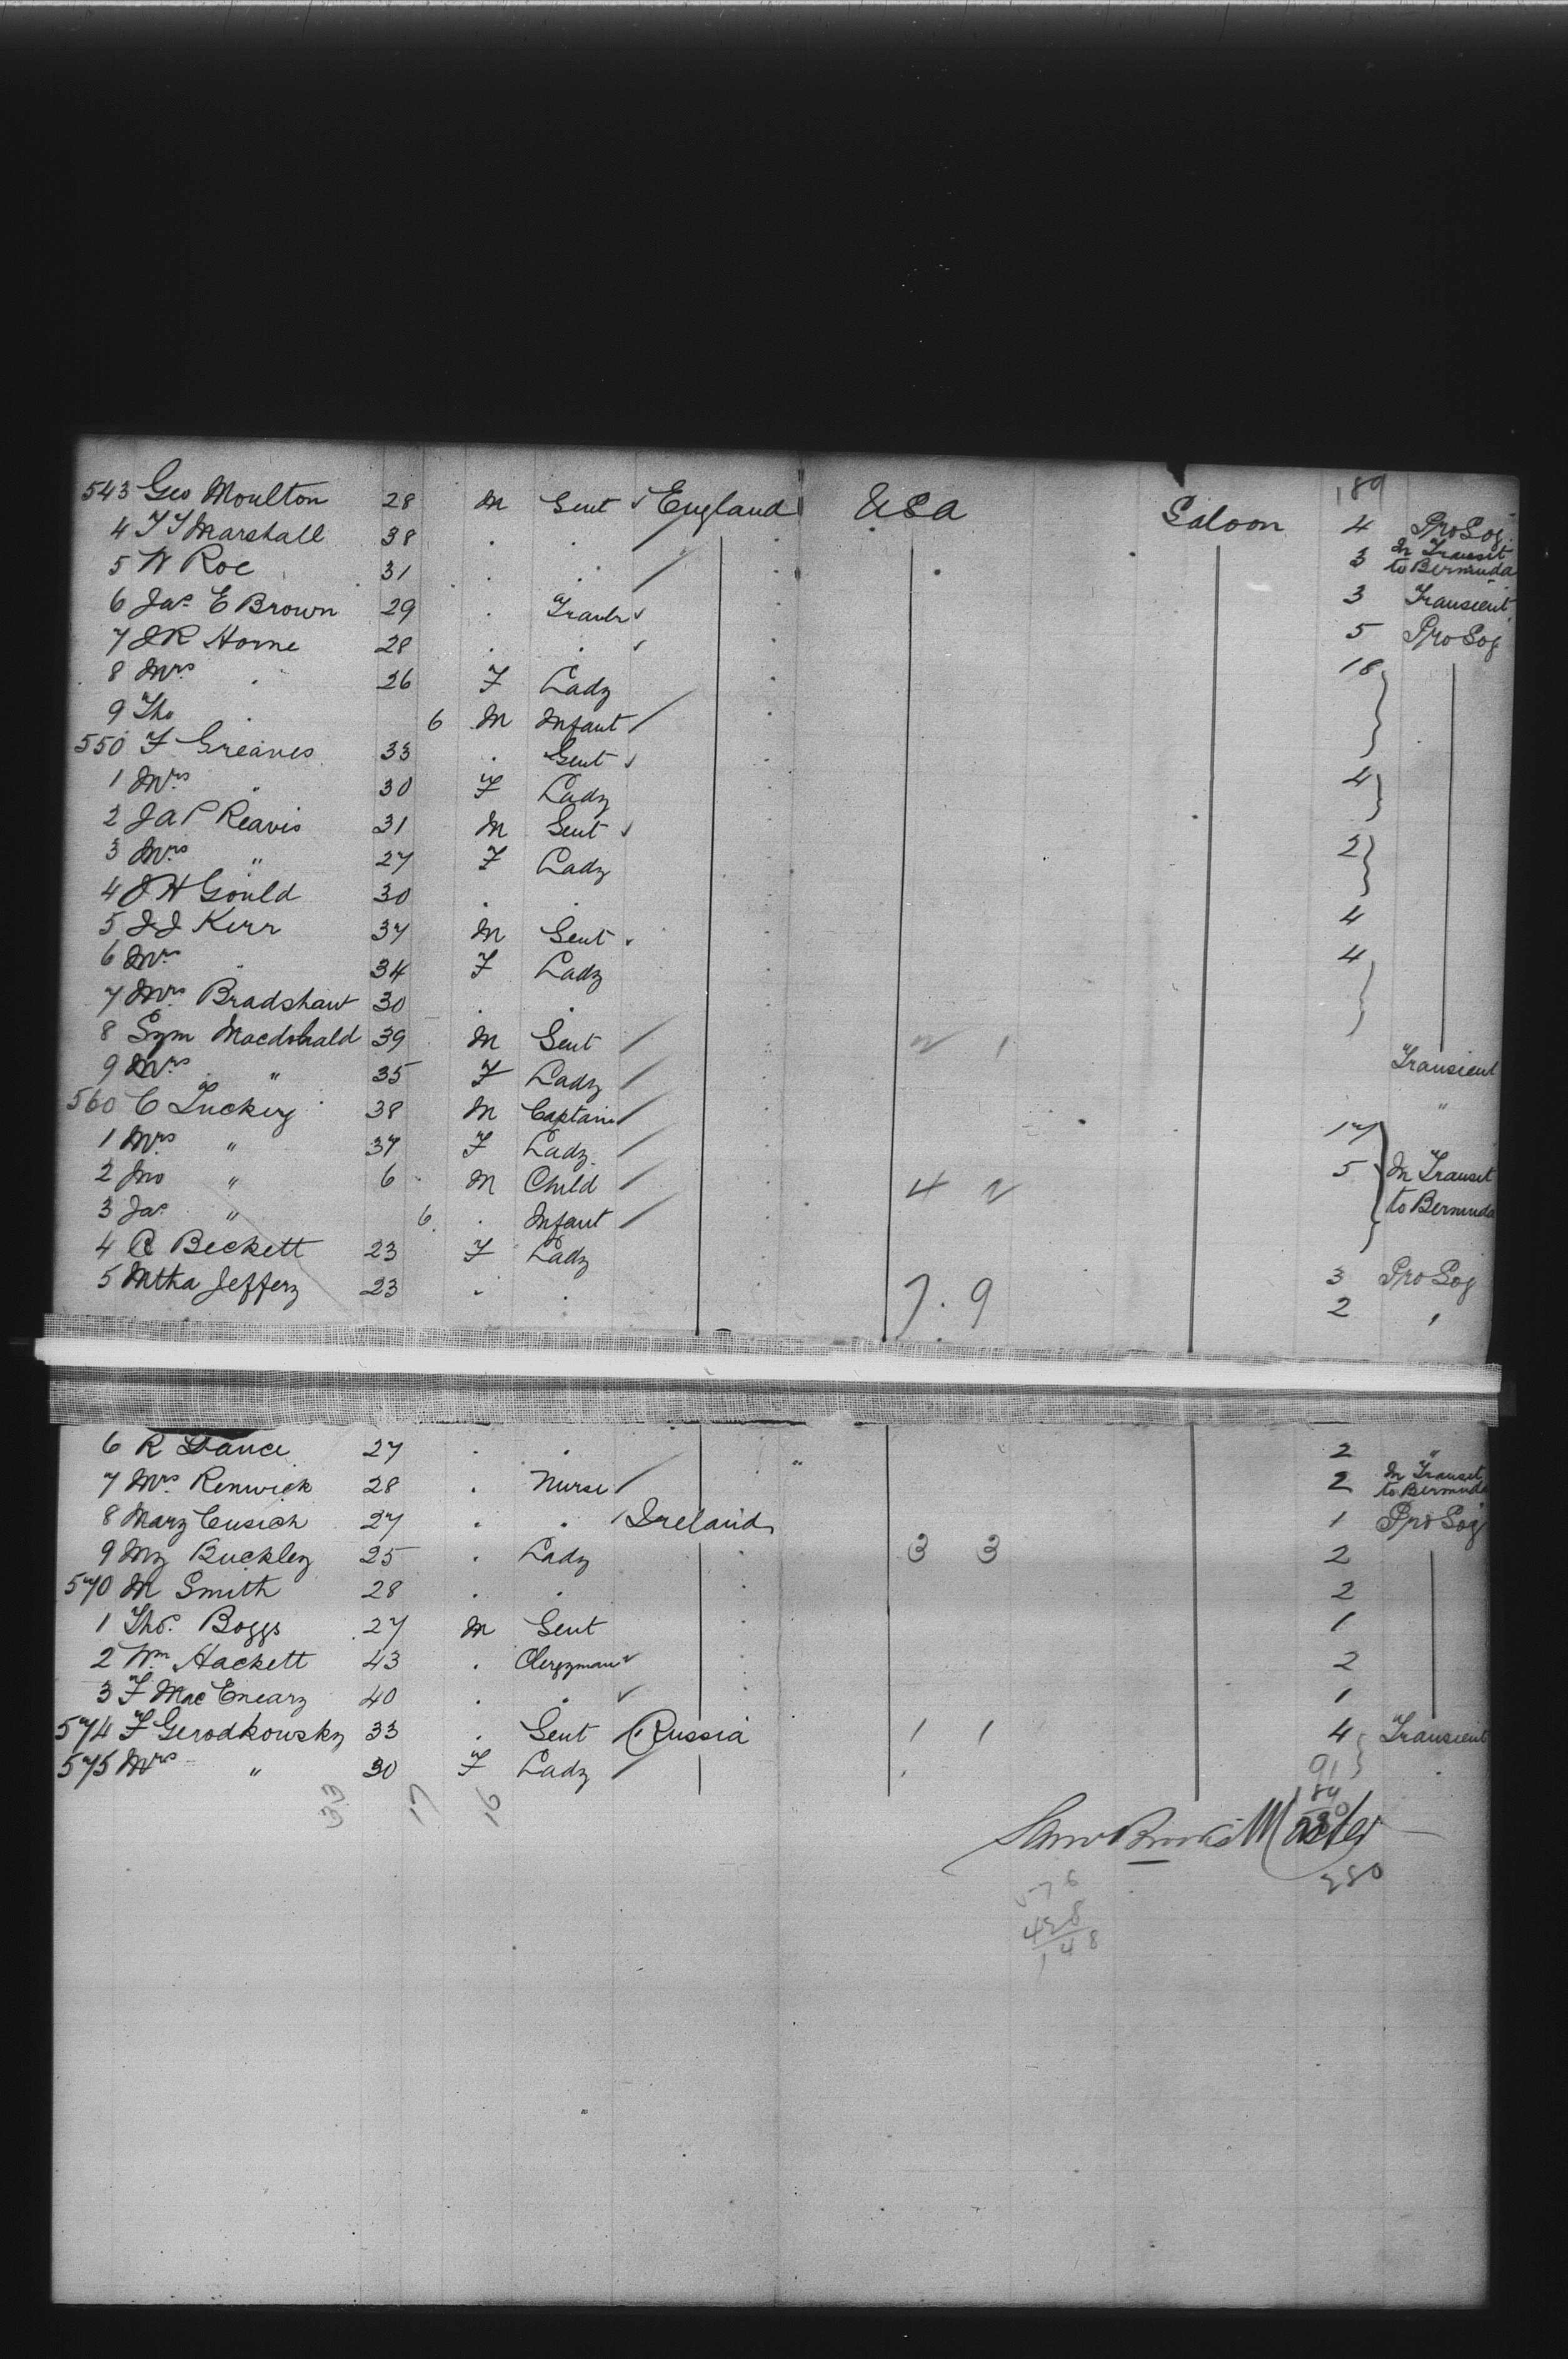 189
543 Geo Moulton 28 M Gent England USA Saloon 4 Pro Soj
4 T T Marshall 38 . . 3 In Transit to Bermuda
5 W Roe 31 . . 3 Transient
6 Jas E Brown 29 . 5 Pro Soj
7 J R Horne 28 . . 18
8 Mrs . 26 F Lady
9 Tho . 6 M Infant
550 F Greaves 33 . Gent 4
1 Mrs . 30 F Lady
2 J A P Reavis 31 M Gent 2
3 Mrs " 27 F Lady
4 J H Gould 30 . . 4
5 J J Kerr 37 M Gent 4
6 Mrs . 34 F Lady
7 Mrs Bradshaw 30 . .
8 Sym Macdonald 39 M Gent Transient
9 Mrs " 35 F Lady "
560 C Tuckey 38 M Captain 17
1 Mrs " 37 F Lady 5 In Transit
2 Jno " 6 M Child 4 2 to Bermuda
3 Jas " 6 . Infant
4 R Beckett 23 F Lady 3 Pro Soj
5 Mtha Jeffery 23 . . 7.9 2 "
6 R Dance 27 . . 2 "
7 Mrs Renwick 28 . Nurse 2 In Transit to Bermuda
8 Mary Cusich 27 . . Ireland 1 Pro Soj
9 My Buckley 25 . Lady 3 3 2
570 M Smith 28 . . 2
1 Thos. Boggs 27 M Gent 1
2 Wm Hackett 43 . Clergyman 2
3 F MacEneary 40 . . 1
574 F Gerodkowsky 33 . Gent Russia 1 1 4 Transient
575 Mrs " 30 F Lady .
33 17 16
91
189
Master
280
576
428
148